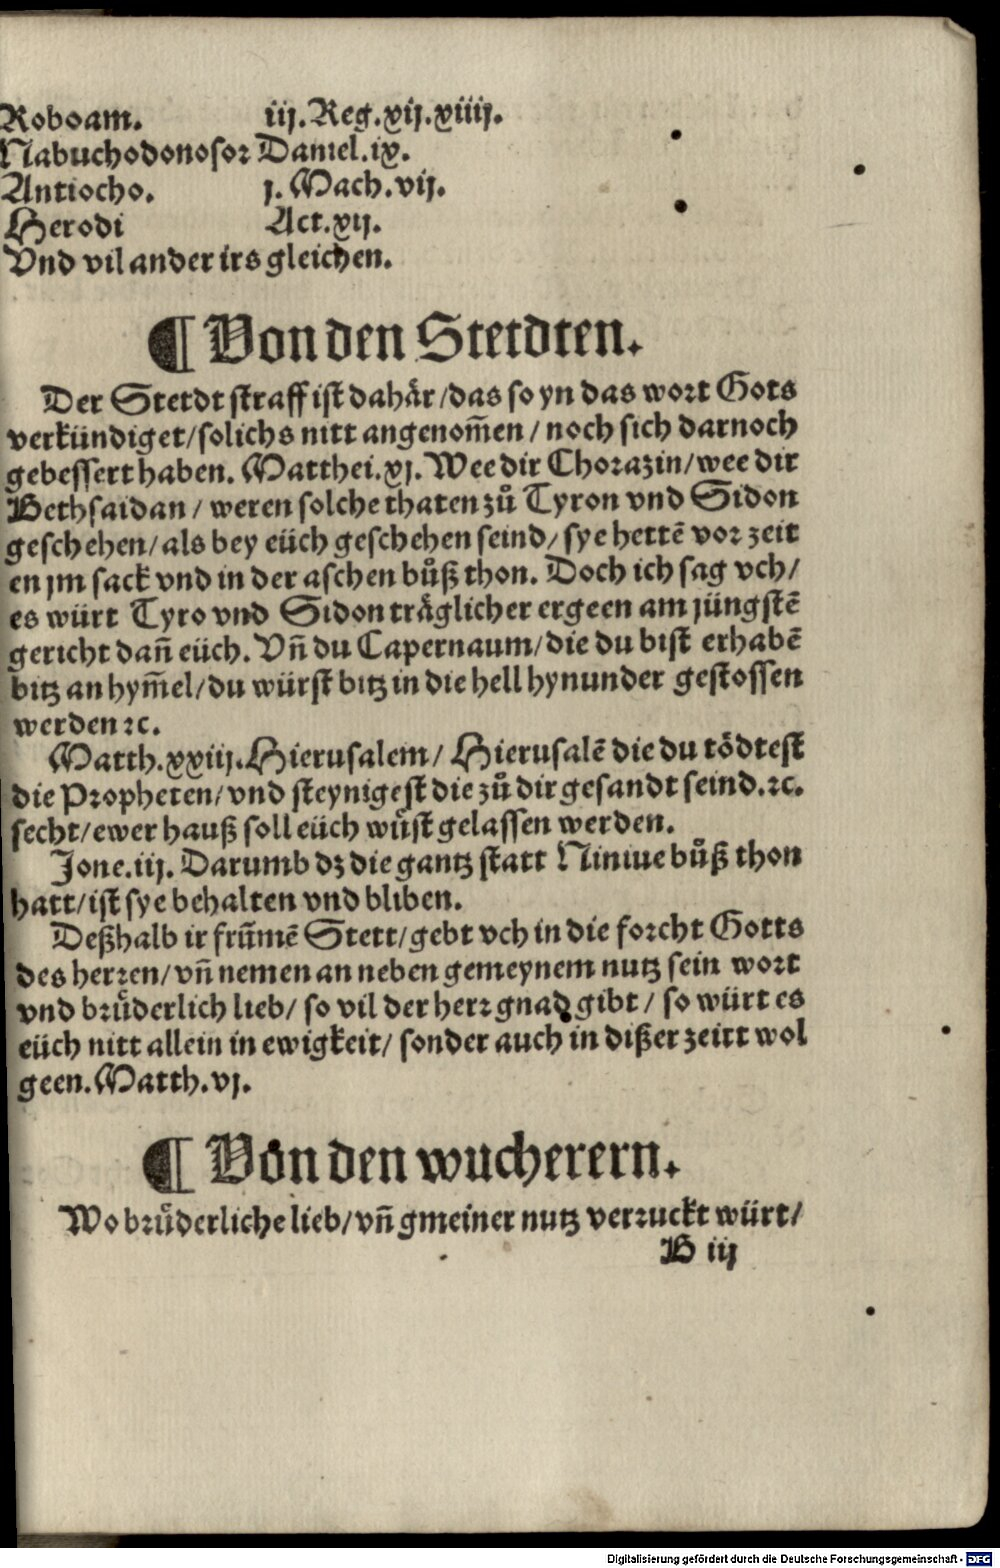 Roboam. iij. Reg. xij. xiiij.
Nabuchodonosor Daniel. ix.
Antiocho. j. Mach. vij.
Herodi Act. xij.
Vnd vil ander irs gleichen.
¶ Von den Stetdten.
Der Stetdt straff ist dahår / das so yn das wort Gots
verkündiget / solichs nitt angenom̃en / noch sich darnoch
gebessert haben. Matthei. xj. Wee dir Chorazin / wee dir
Bethsaidan / weren solche thaten zů Tyron vnd Sidon
geschehen / als bey eüch geschehen seind / sye hettē vor zeit
en jm sack vnd in der aschen bůß thon. Doch ich sag vch /
es würt Tyro vnd Sidon träglicher ergeen am jüngstē
gericht dañ eüch. Vñ du Capernaum / die du bist erhabē
bitz an hym̃el / du würst bitz in die hell hynunder gestossen
werden ꝛc.
Matth. xxiij. Hierusalem / Hierusalē die du tödtest
die Propheten / vnd steynigest die zů dir gesandt seind. ꝛc.
secht / ewer hauß soll eüch wůst gelassen werden.
Jone. iij. Darumb dz die gantz statt Niniue bůß thon
hatt / ist sye behalten vnd bliben.
Deßhalb ir frūmē Stett / gebt vch in die forcht Gotts
des herren / vñ nemen an neben gemeynem nutz sein wort
vnd brüderlich lieb / so vil der herr gnad gibt / so würt es
eüch nitt allein in ewigkeit / sonder auch in dißer zeitt wol
geen. Matth. vj.
¶ Von den wucherern.
Wo brüderliche lieb / vñ gmeiner nutz verruckt würt /
B iij
Digitalisierung gefördert durch die Deutsche Forschungsgemeinschaft - DFG